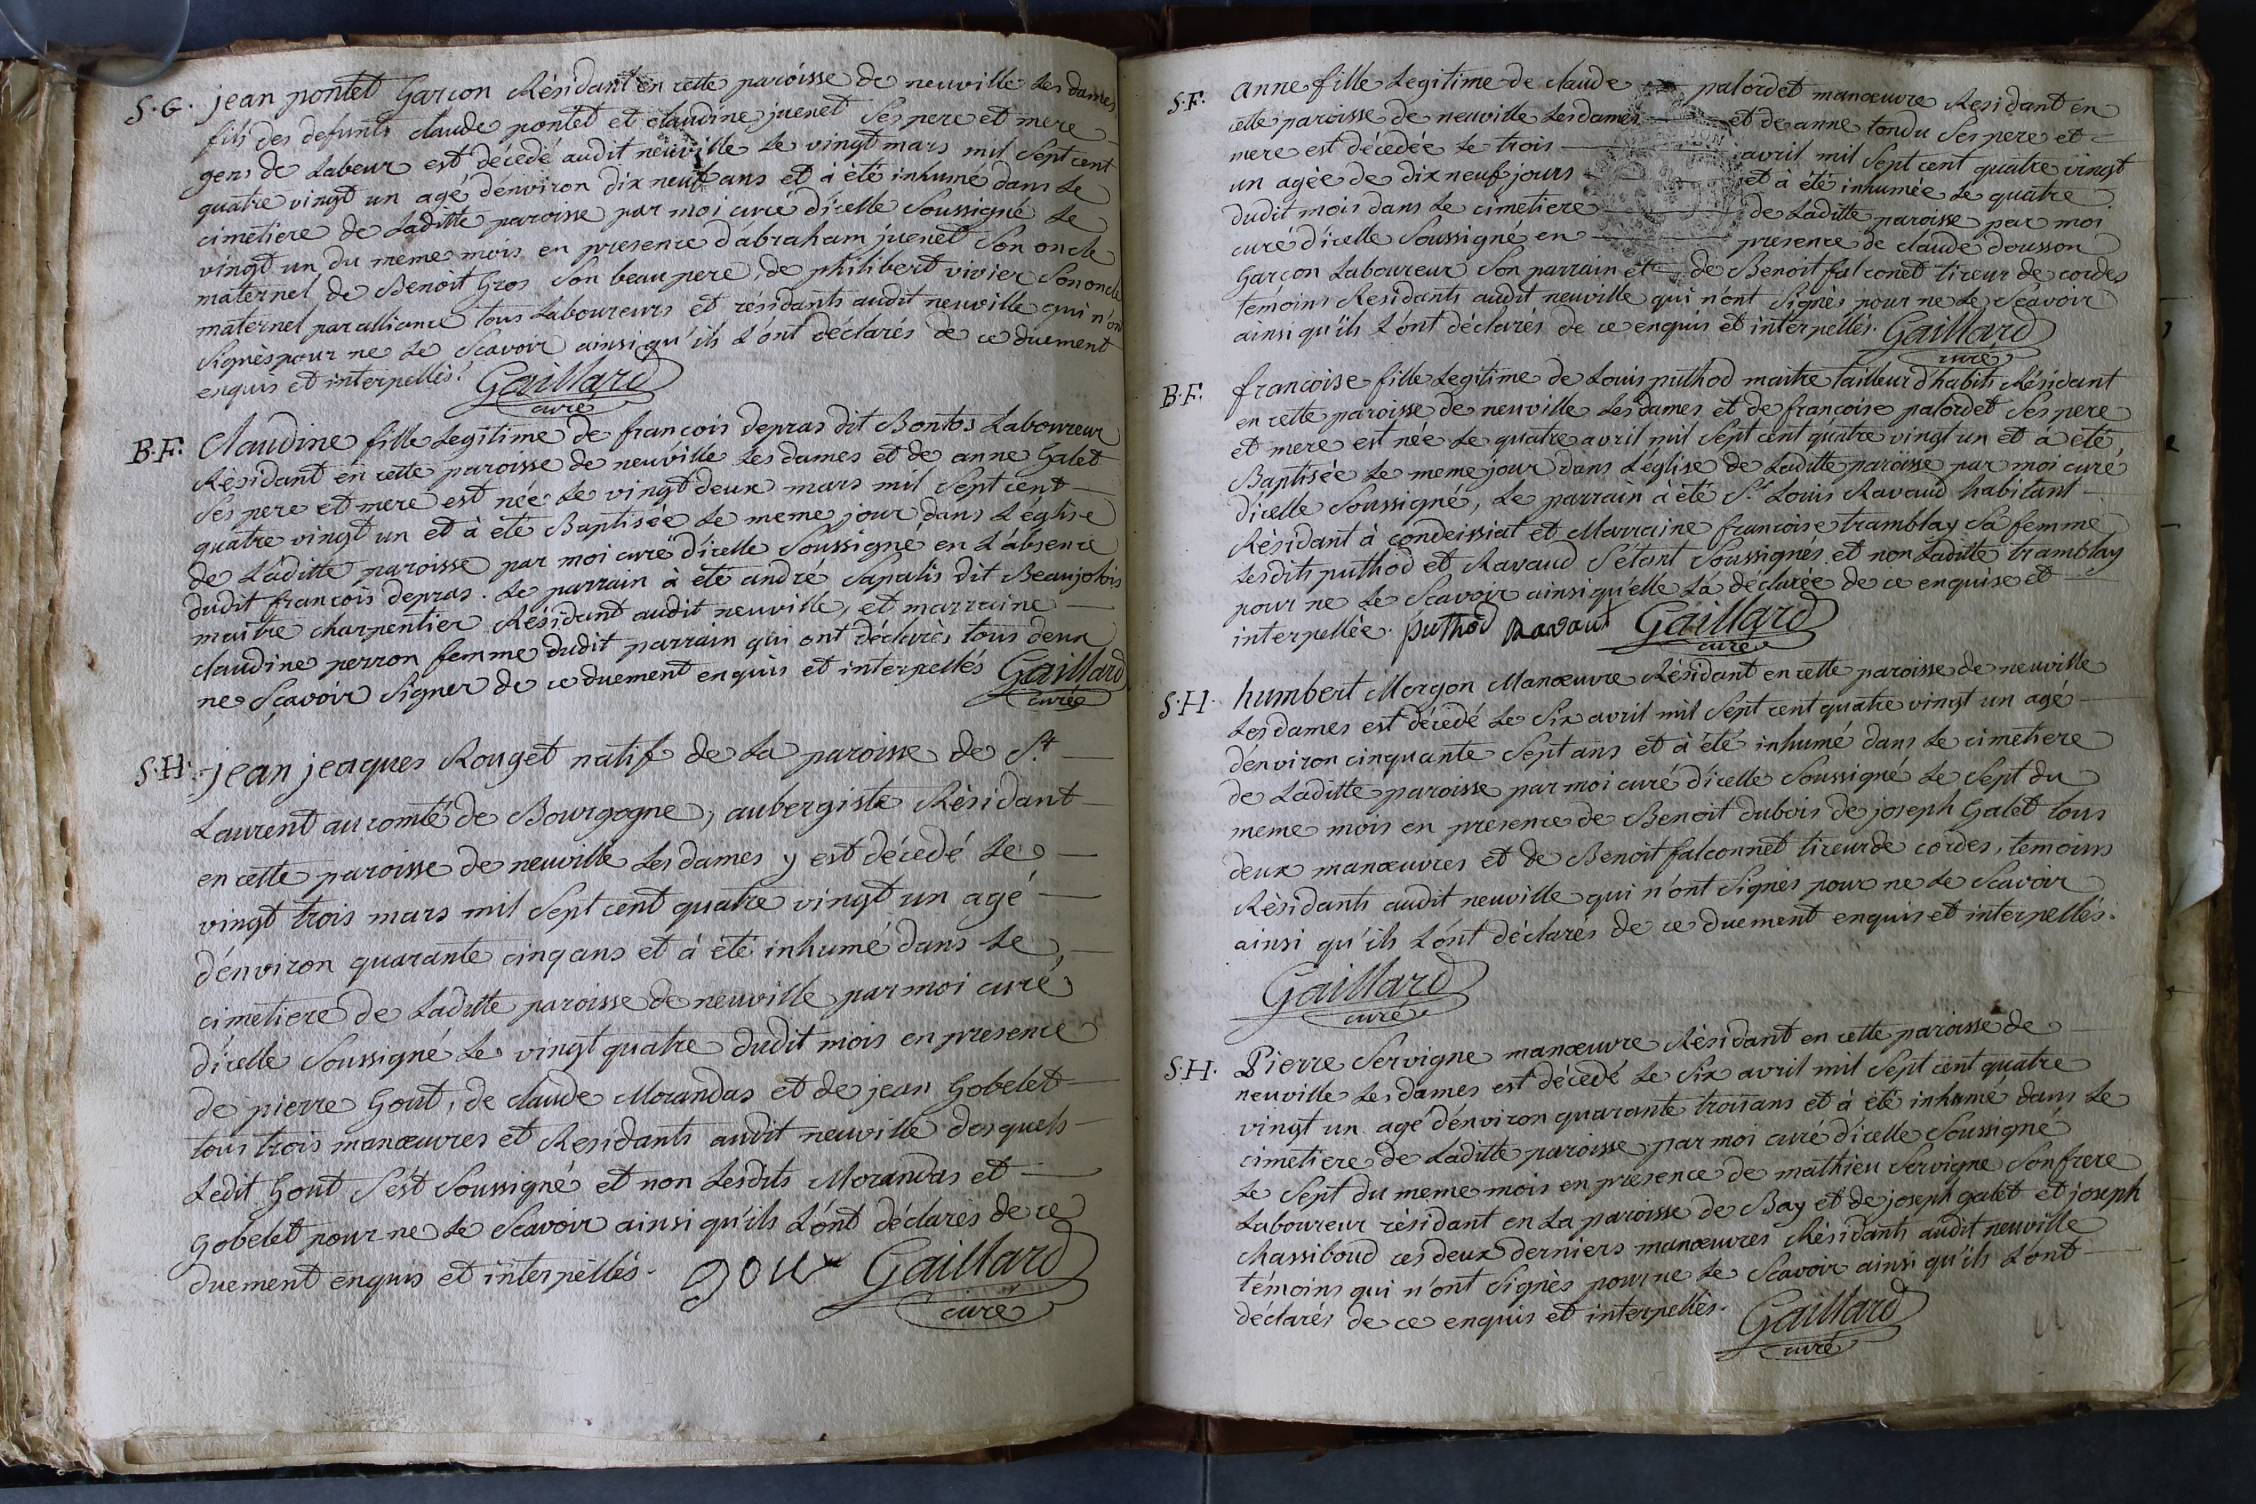 S.G. jean pontet Garcon Résidant en cette paroisse de neuville Les dames
fils des defunts claude pontet et claudine juenet Ses pere et mere
gens de Labeur est décedé audit neuville Le vingt mars mil Sept cent
quatre vingt un agé d'énviron dix neuf ans et à été inhumé dans Le
cimetiere de Laditte paroisse par moi curé d'icelle Soussigné Le
vingt un du meme mois en presence d'abraham juenet Son oncle
maternel, de Benoit Gros Son beau pere, de philibert vivier Son oncle
maternel par alliance tous Laboureurs et résidants audit neuville qui n'ont
Signès pour ne Le Scavoir ainsi qu'ils L'ónt déclarés de ce duement
enquis et interpellés. Gaillard
curé
B.F. Claudine fille Legitime de francois depras dit Bontos Laboureur
Résidant en cette paroisse de neuville Les dames et de anne Galet
Ses pere et mere est née Le vingt deux mars mil Sept cent
quatre vingt un et à été Baptisée Le meme jour dans L'église
de Laditte paroisse par moi curé d'icelle Soussigné en L'absence
dudit francois depras. Le parrain à été andré Sapalis dit Beaujolois
maitre charpentier Résidant audit neuville, et marraine
claudine perron femme dudit parrain qui ont déclarès tous deux
ne Sçavoir Signer de ce duement enquis et interpellés Gaillard
curé
S.H. jean jeaques Rouget natif de La paroisse de St
Laurent au comté de Bourgogne, aubergiste Résidant
en cette paroisse de neuville Les dames y est décedé Le
vingt trois mars mil Sept cent quatre vingt un agé
d'énviron quarante cinq ans et à été inhumé dans Le
cimetiere de Laditte paroisse de neuville par moi curé
d'icelle Soussigné Le vingt quatre dudit mois en presence
de pierre Gout, de claude Morandas et de jean Gobelet
tous trois manœuvres et Residants audit neuville desquels
Ledit Gout S'est Soussigné et non Lesdits Morandas et
Gobelet pour ne Le Scavoir ainsi qu'ils L'ónt déclarés de ce
duement enquis et interpellés. goux Gaillard
curé
S.F. anne fille Legitime de claude palordet manœuvre Résidant en
cette paroisse de neuville Les dames et de anne tondu Ses pere et
mere est décedée Le trois avril mil Sept cent quatre vingt
un agée de dix neuf jours et à été inhumée Le quatre
dudit mois dans Le cimetiere de Laditte paroisse par moi
curé d'icelle Soussigné en presence de claude dousson
Garçon Laboureur Son parrain et de Benoit falconet tireur de cordes
témoins Residants audit neuville qui n'ont Signès pour ne Le Sçavoir
ainsi qu'ils L'ónt déclarés de ce enquis et interpellés. Gaillard
curé
B.F. francoise fille Legitime de Louis puthod maitre tailleur d'habits Résidant
en cette paroisse de neuville Les dames et de francoise palordet Ses pere
et mere est née Le quatre avril mil Sept cent quatre vingt un et à été
Baptisée Le meme jour dans L'église de Laditte paroisse par moi curé
d'icelle Soussigné, Le parrain à été Sr Louis Ravaud habitant
Résidant à condeissiat et Marraine francoise tramblay Sa femme
Lesdits puthod et Ravaud S'étant Soussignés et non Laditte tramblay
pour ne Le Scavoir ainsi qu'elle L'a déclarée de ce enquise et
interpellée. puthod Ravaud Gaillard
curé
S.H. humbert Morgon Manœuvre Résidant en cette paroisse de neuville
Les dames est décedé Le Six avril mil Sept cent quatre vingt un agé
d'énviron cinquante Sept ans et à été inhumé dans Le cimetiere
de Laditte paroisse par moi curé d'icelle Soussigné Le Sept du
meme mois en presence de Benoit dubois de joseph Galet tous
deux manœuvres et de Benoit falconnet tireur de cordes, temoins
Résidants audit neuville qui n'ont Signés pour ne Le Scavoir
ainsi qu'ils L'ónt déclares de ce duement enquis et interpellés.
Gaillard
curé
S.H. Pierre Servigne manœuvre Résidant en cette paroisse de
neuville Les dames est décedé Le Six avril mil Sept cent quatre
vingt un agé d'énviron quarante trois ans et à été inhumé dans Le
cimetiere de Laditte paroisse par moi curé d'icelle Soussigné
Le Sept du meme mois en presence de mathieu Servigne Son frere
Laboureur résidant en La paroisse de Bay et de joseph galet et joseph
chassiboud ces deux derniers manœuvres Résidants audit neuville
témoins qui n'ont Signès pour ne Le Scavoir ainsi qu'ils L'ont
déclarés de ce enquis et interpellés. Gaillard
curé